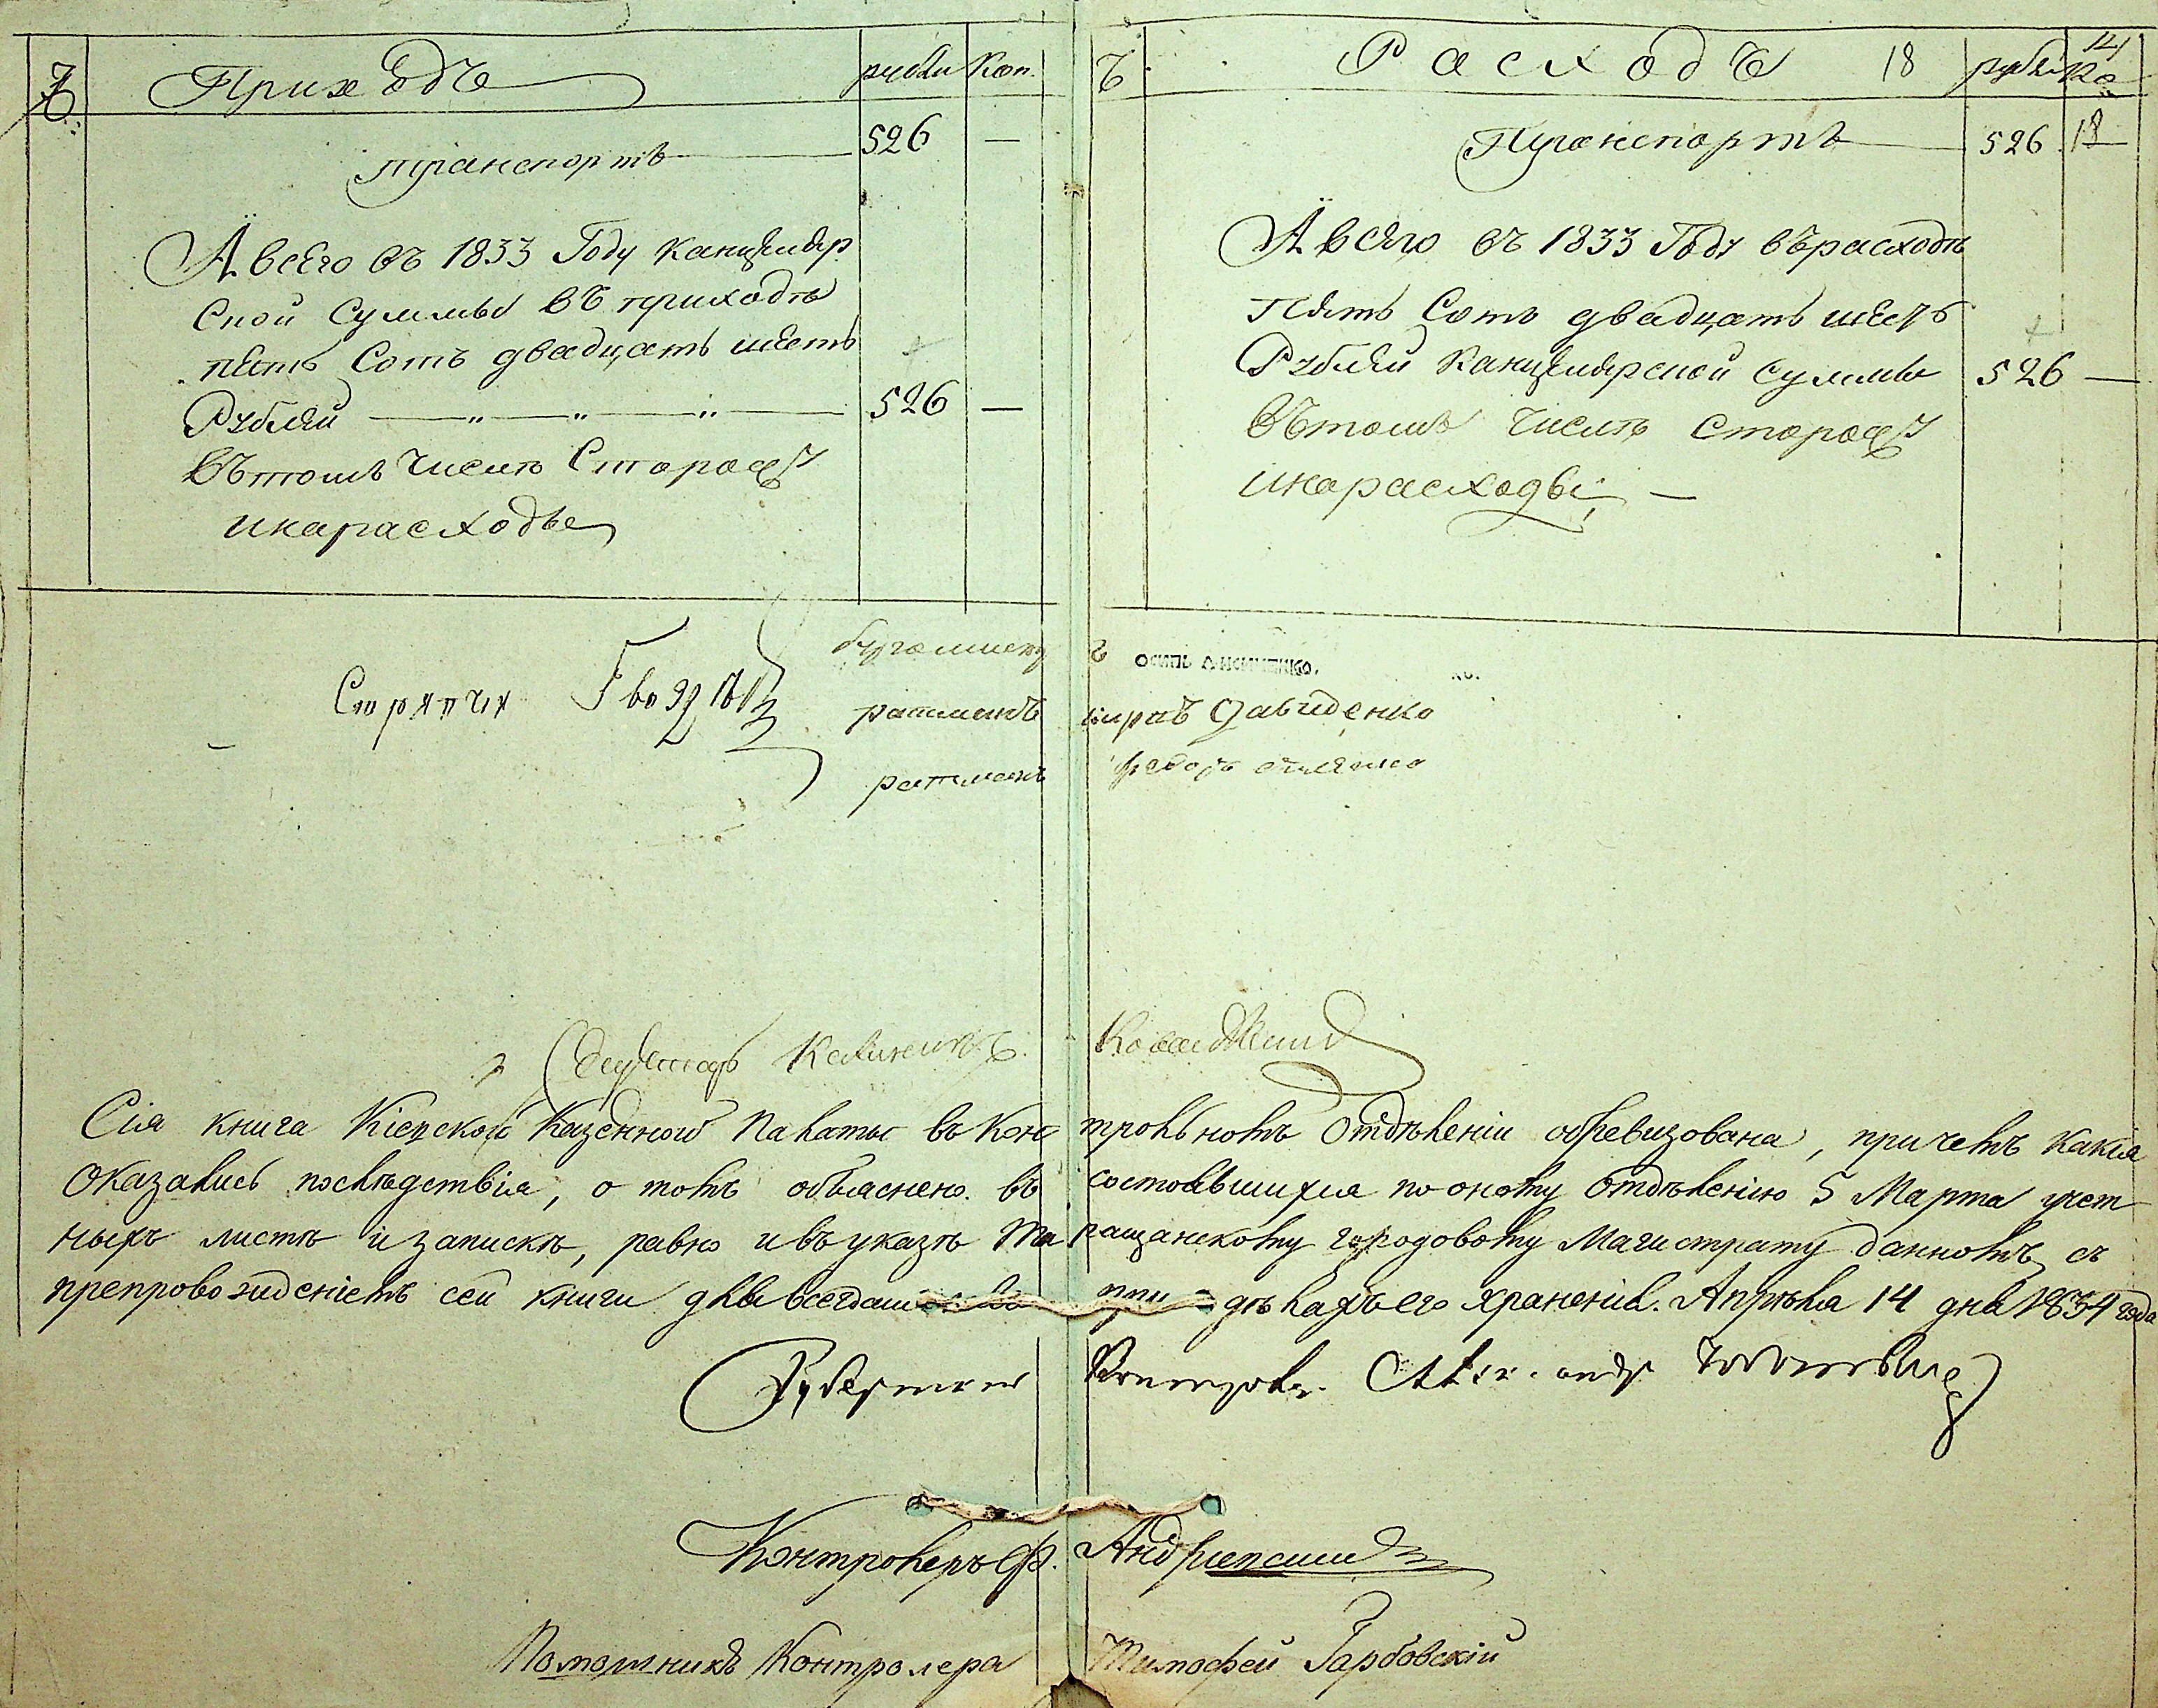 Приходъ рубли Коп.
транспортъ 526 —
А всего въ 1833 Году Канцеляр
ской Суммы въ приходѣ
пять Сотъ двадцать шесть
Рублей 526 —
Въ томъ числѣ Сторожу
и на расходы
Ъ Расходъ 18 рубли Ко 14
Транспортъ 526 18
А всего въ 1833 Году въ расходѣ
пять Сотъ двадцать шесть
Рублей Канцелярской Суммы 526 —
Въ томъ числѣ Сторожу
и на расходы —
Стряпчій
бургомистръ Осипъ
ратманъ Кирилъ Давиденко
ратманъ
Сія книга Кіевской Казенной Палаты въ Контрольномъ Отдѣленіи обревизована, причемъ какія
Оказались послѣдствія, о томъ объяснено въ состоявшихся по оному Отдѣленію 5 Марта учет
ныхъ листѣ и запискѣ, равно и въ указѣ Таращанскому городовому Магистрату данномъ съ
препровожденіемъ сей книги для всегдашняго при дѣлахъ его храненія. Апрѣля 14 дня 1834 года
Губернскій Контролеръ
Контролеръ Ф. Андріевскій
Помощникъ Контролера Тимофей Гарбовскій